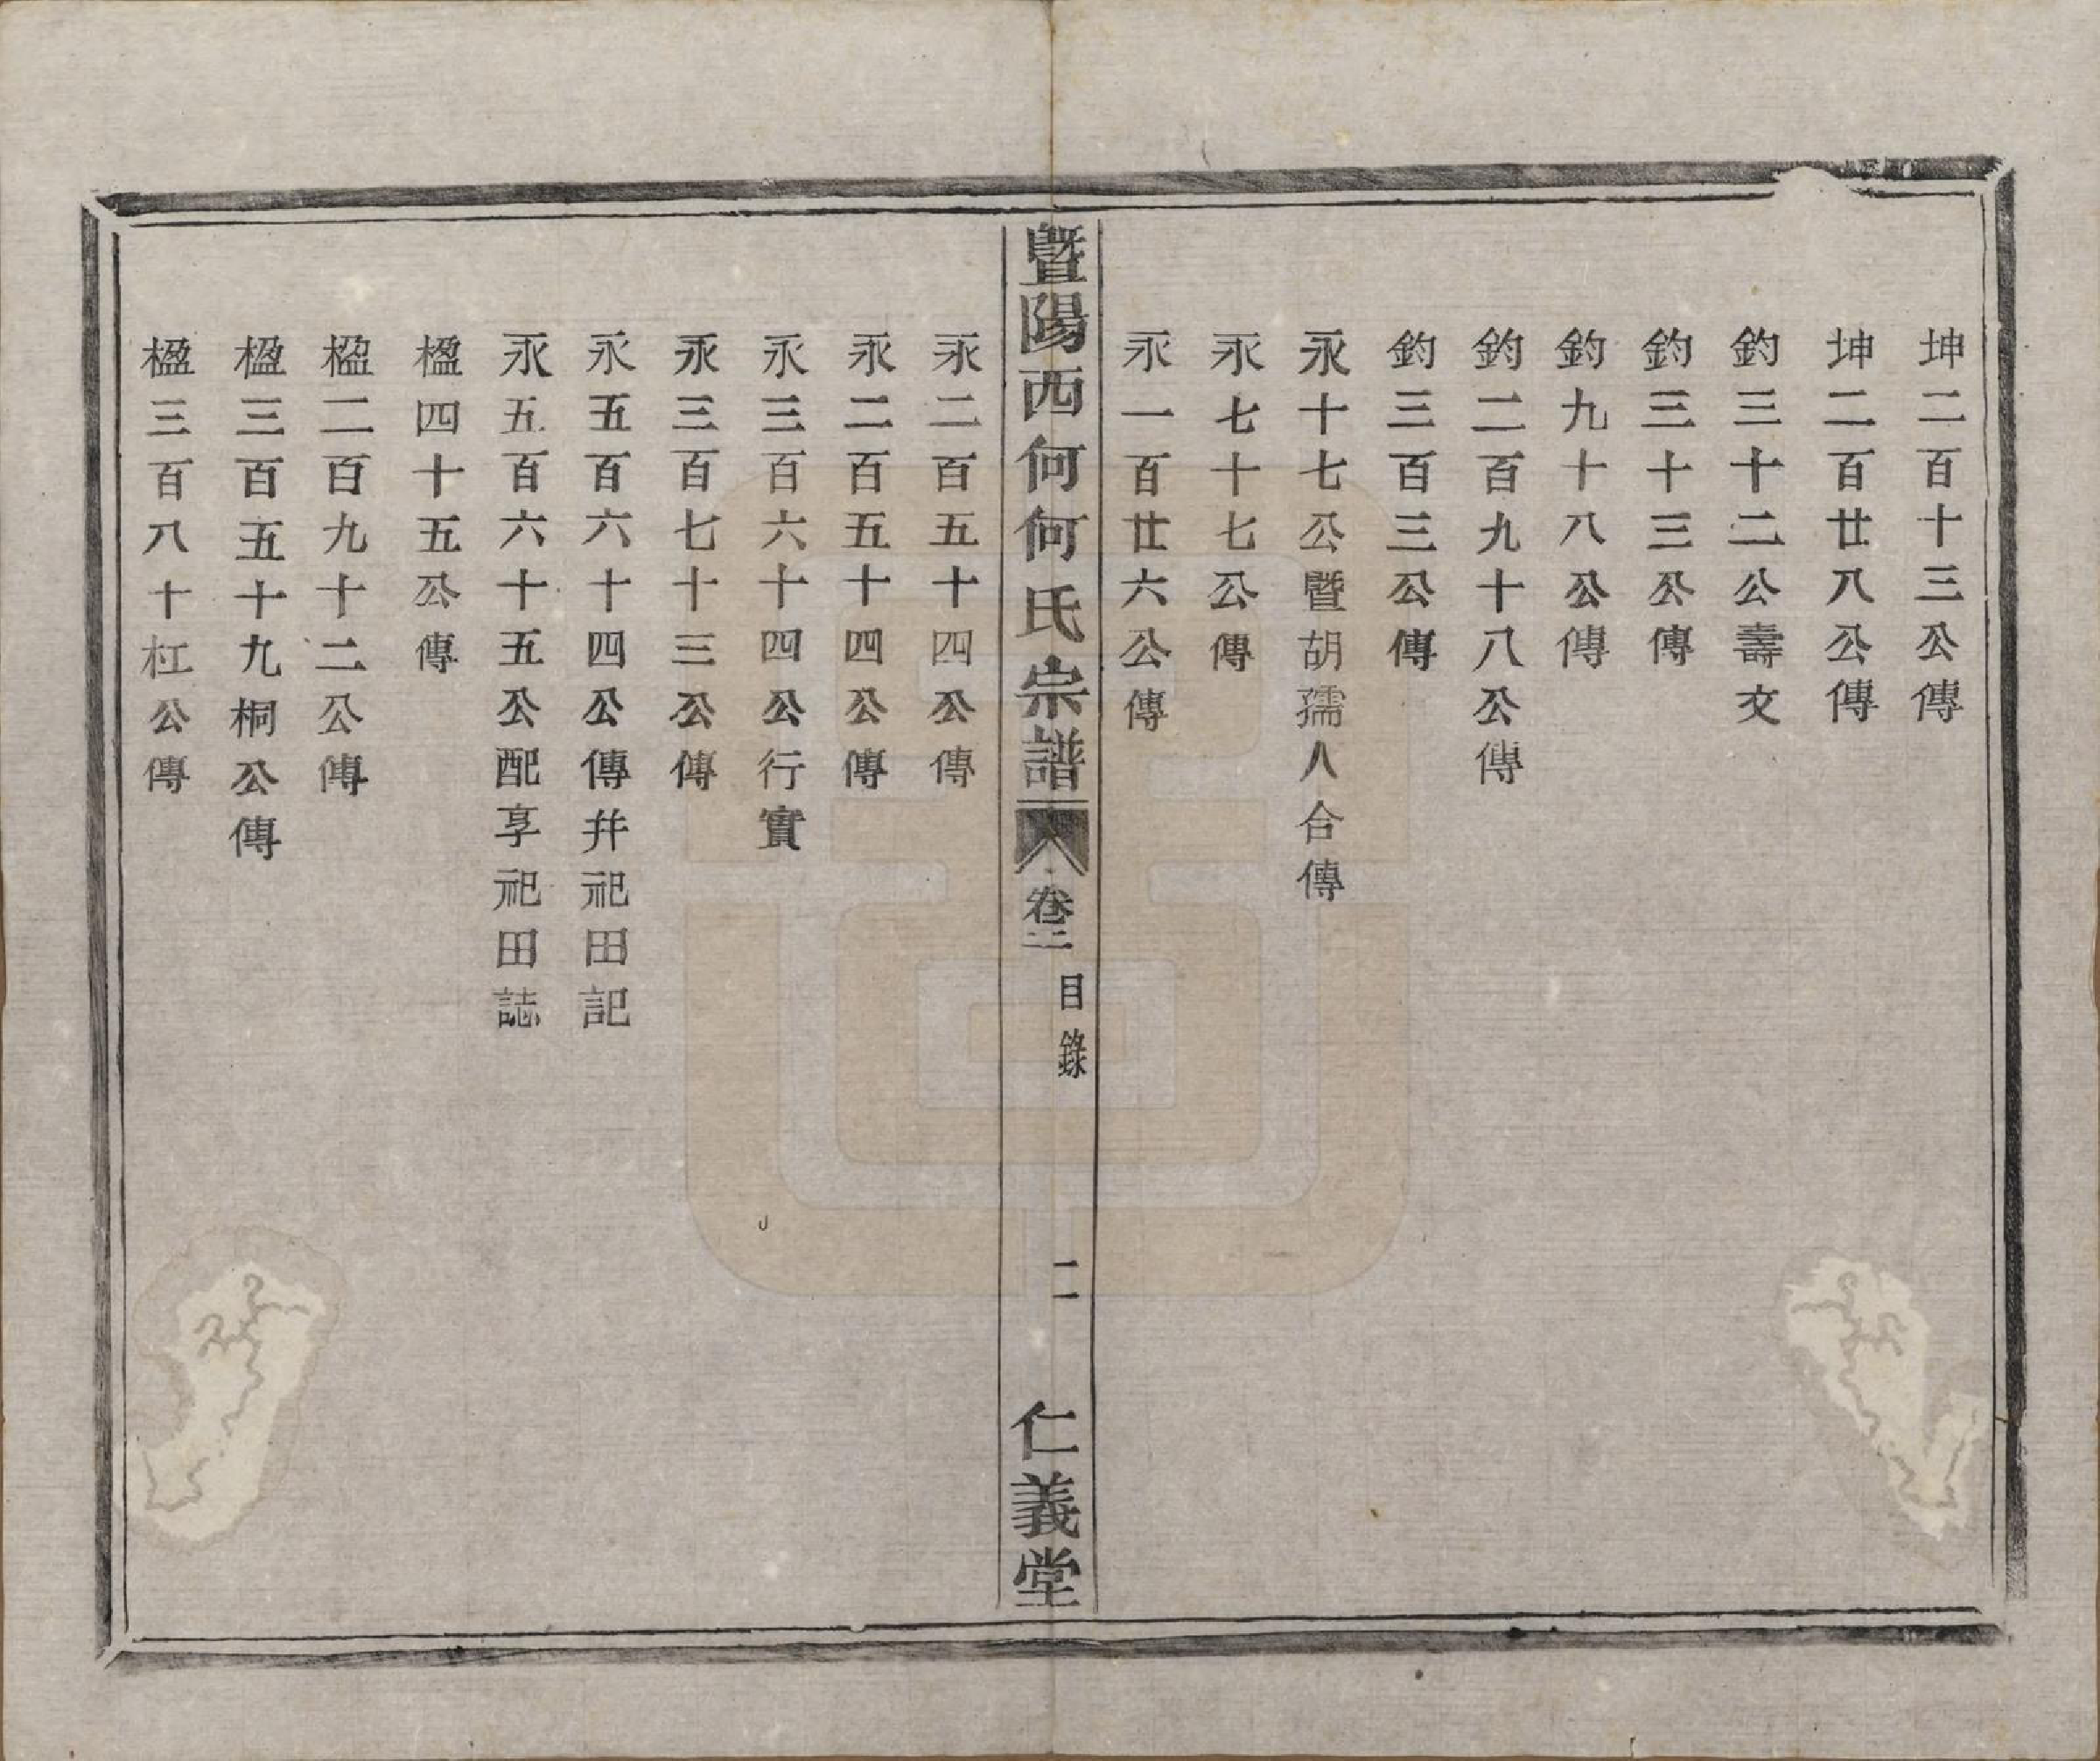 坤二百十三公傳
坤二百廿八公傳
釣三十二公壽文
釣三十三公傳
釣九十八公傳
釣二百九十八公傳
釣三百三公傳
永十七公暨胡孺人合傳
永七十七公傳
永一百廿六公傳
暨陽西何何氏宗譜 卷二 目錄 二 仁義堂
永二百五十四公傳
永二百五十四公傳
永三百六十四公行實
永三百七十三公傳
永五百六十四公傳并祀田記
永五百六十五公配享祀田誌
楹四十五公傳
楹二百九十二公傳
楹三百五十九桐公傳
楹三百八十杠公傳